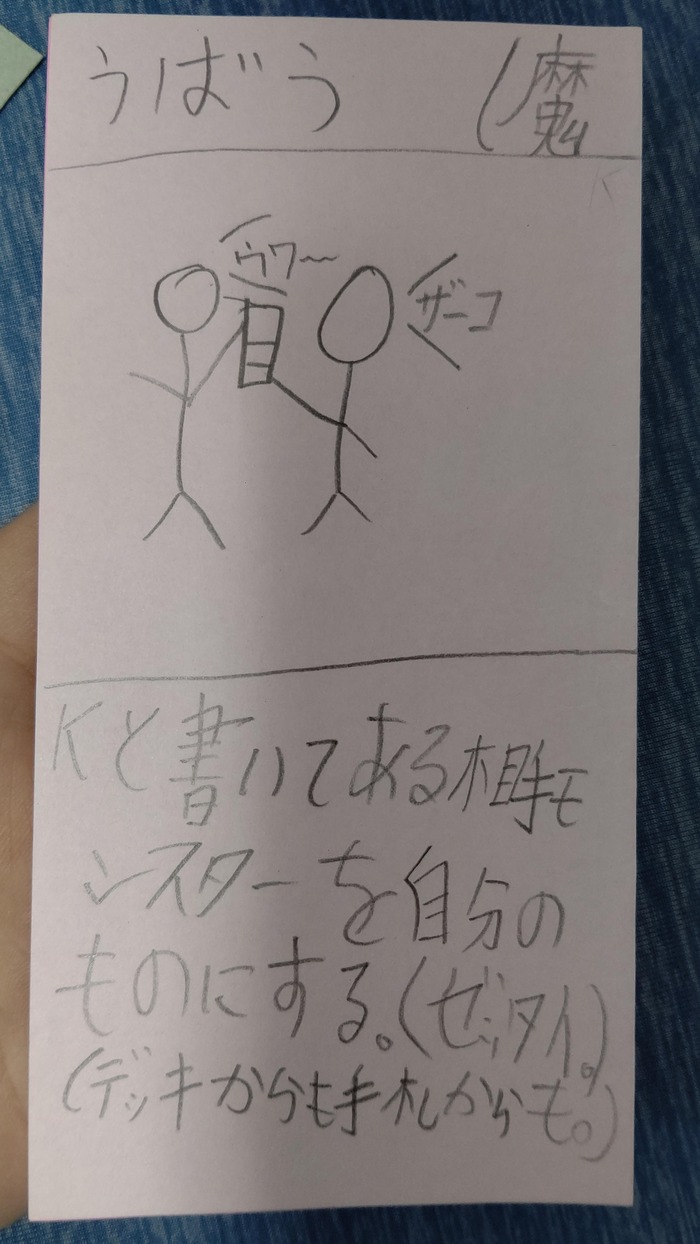 うばう (魔
K
ウワ〜
ザーコ
Kと書いてある相手モ
ンスターを自分の
ものにする。(ゼッタイ。)
(デッキからも手札からも。)